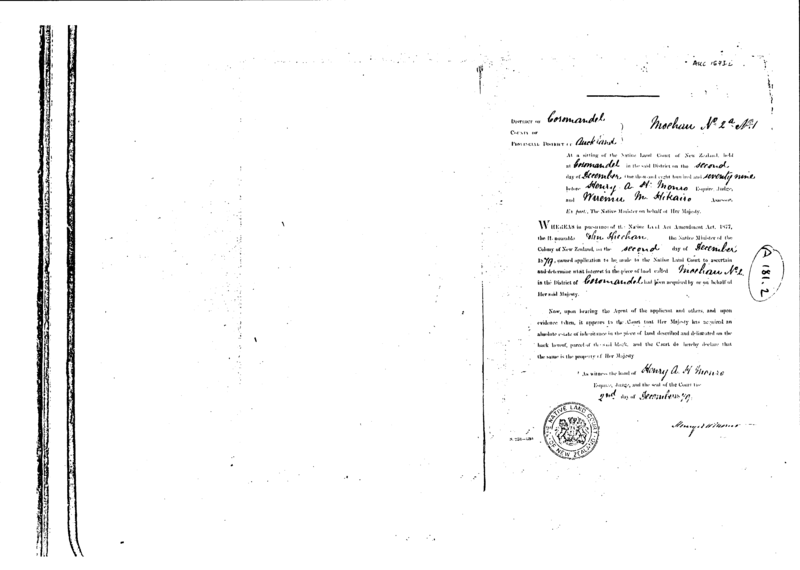 AUC 1692
DISTRICT OF Coromandel
Moehau No 2a No 1
COUNTY OF
PROVINCIAL DISTRICT OF Auckland
At a sitting of the Native Land Court of New Zealand, held
at Coromandel in the said District on the second
day of December, One thousand eight hundred and seventy nine
before Henry A H Monro Esquire, Judge,
and Wiremu M Hikairo Assessor.
Ex parte, The Native Minister on behalf of Her Majesty.
WHEREAS in pursuance of the Native Land Act Amendment Act, 1877,
the Honourable John Sheehan the Native Minister of the
Colony of New Zealand, on the second day of December
1879, caused application to be made to the Native Land Court to ascertain
and determine what interest in the piece of land called Moehau No 2
in the District of Coromandel had been acquired by or on behalf of
Her said Majesty.
Now, upon hearing the Agent of the applicant and others, and upon
evidence taken, it appears to the Court that Her Majesty has acquired an
absolute estate of inheritance in the piece of land described and delineated on the
back hereof, parcel of the said block, and the Court do hereby declare that
the same is the property of Her Majesty
As witness the hand of Henry A H Monro
Esquire, Judge, and the seal of the Court the
2nd day of December 79
NATIVE LAND COURT OF NEW ZEALAND
Henry A H Monro
A 181.2